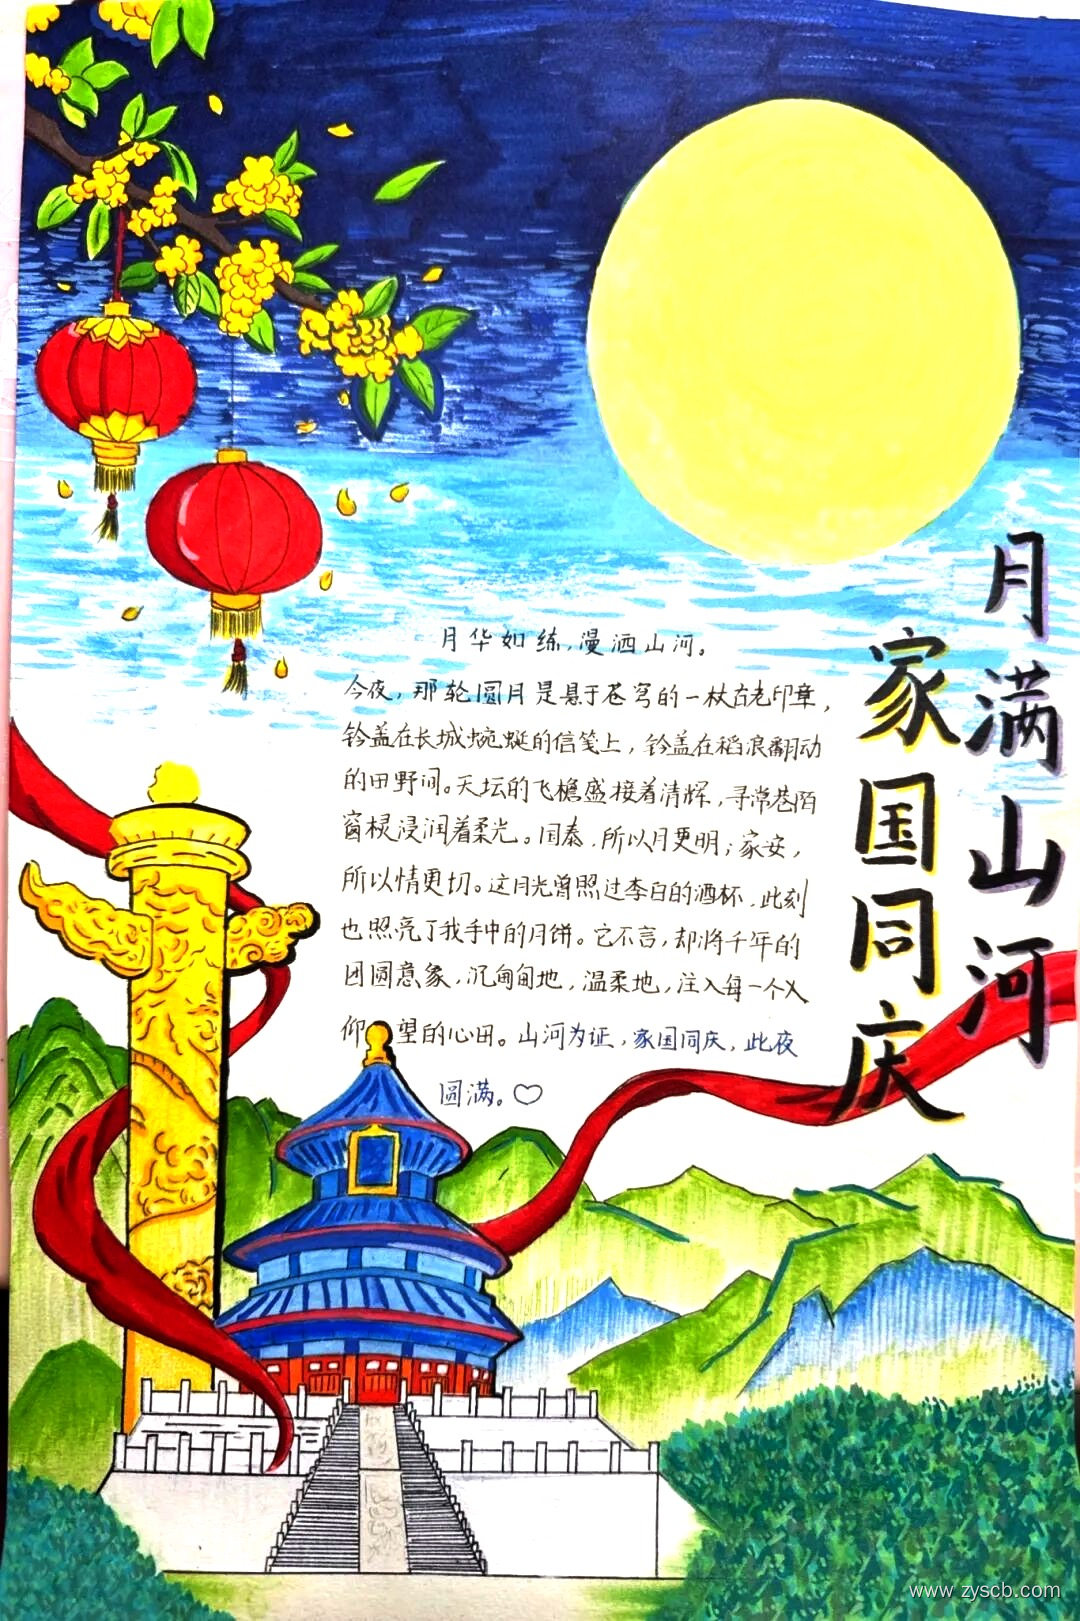 月满山河
家国同庆
月华如练，漫洒山河。
今夜，那轮圆月是悬于苍穹的一枚古老印章，
钤盖在长城蜿蜒的信笺上，钤盖在稻浪翻动
的田野间。天坛的飞檐盛接着清辉，寻常巷陌
窗棂浸润着柔光。国泰，所以月更明；家安，
所以情更切。这月光曾照过李白的酒杯，此刻
也照亮了我手中的月饼。它不言，却将千年的
团圆意象，沉甸甸地，温柔地，注入每一个人
仰望的心田。山河为证，家国同庆，此夜
圆满。♡
www.zyscb.com